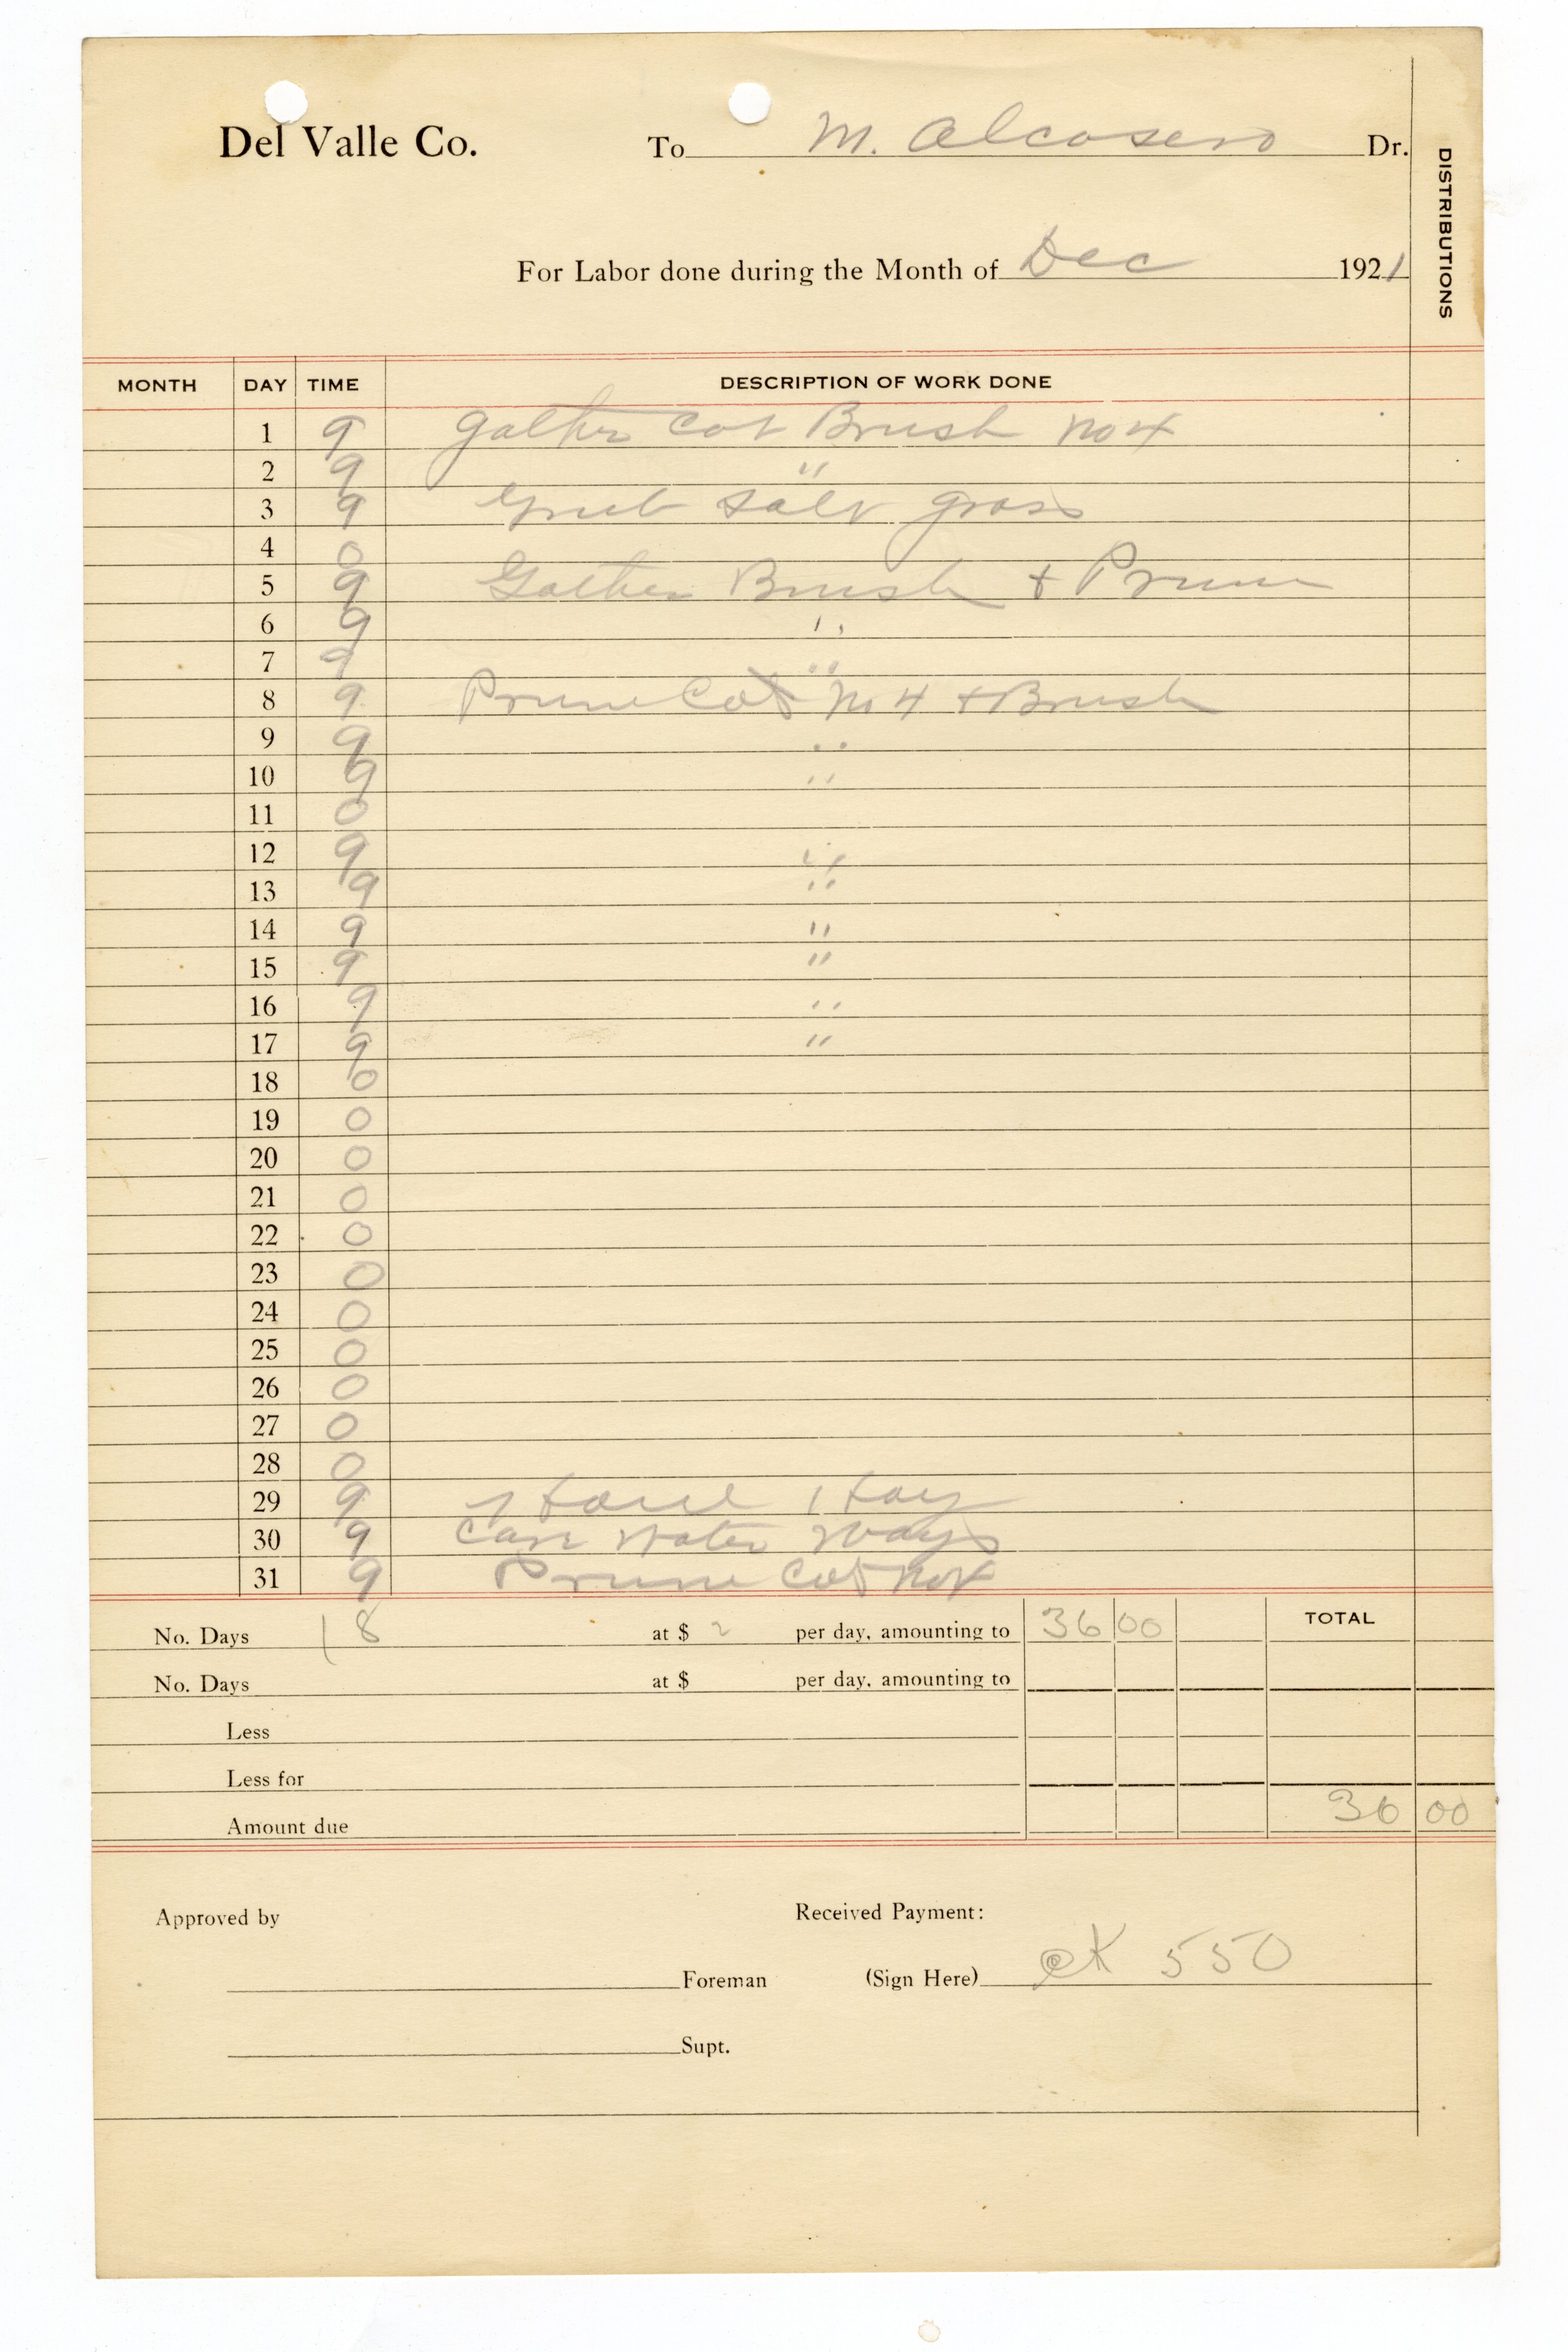 Del Valle Co. To M. Alcosero Dr.
DISTRIBUTIONS
For Labor done during the Month of Dec 1921
MONTH DAY TIME DESCRIPTION OF WORK DONE
1 9 Gather Cot Brush No 4
2 9 "
3 9 Grub Salt grass
4 0
5 9 Gather Brush + Prune
6 9 "
7 9 "
8 9 Prune Cot No 4 + Brush
9 9 "
10 9 "
11 0
12 9 "
13 9 "
14 9 "
15 9 "
16 9 "
17 9 "
18 0
19 0
20 0
21 0
22 0
23 0
24 0
25 0
26 0
27 0
28 0
29 9 Haul Hay
30 9 Water Ways
31 9 Prune Cot No 4
No. Days 18 at $ 2 per day, amounting to 36 00 TOTAL
No. Days at $ per day, amounting to
Less
Less for
Amount due 36 00
Approved by Received Payment:
Foreman (Sign Here) CK 550
Supt.